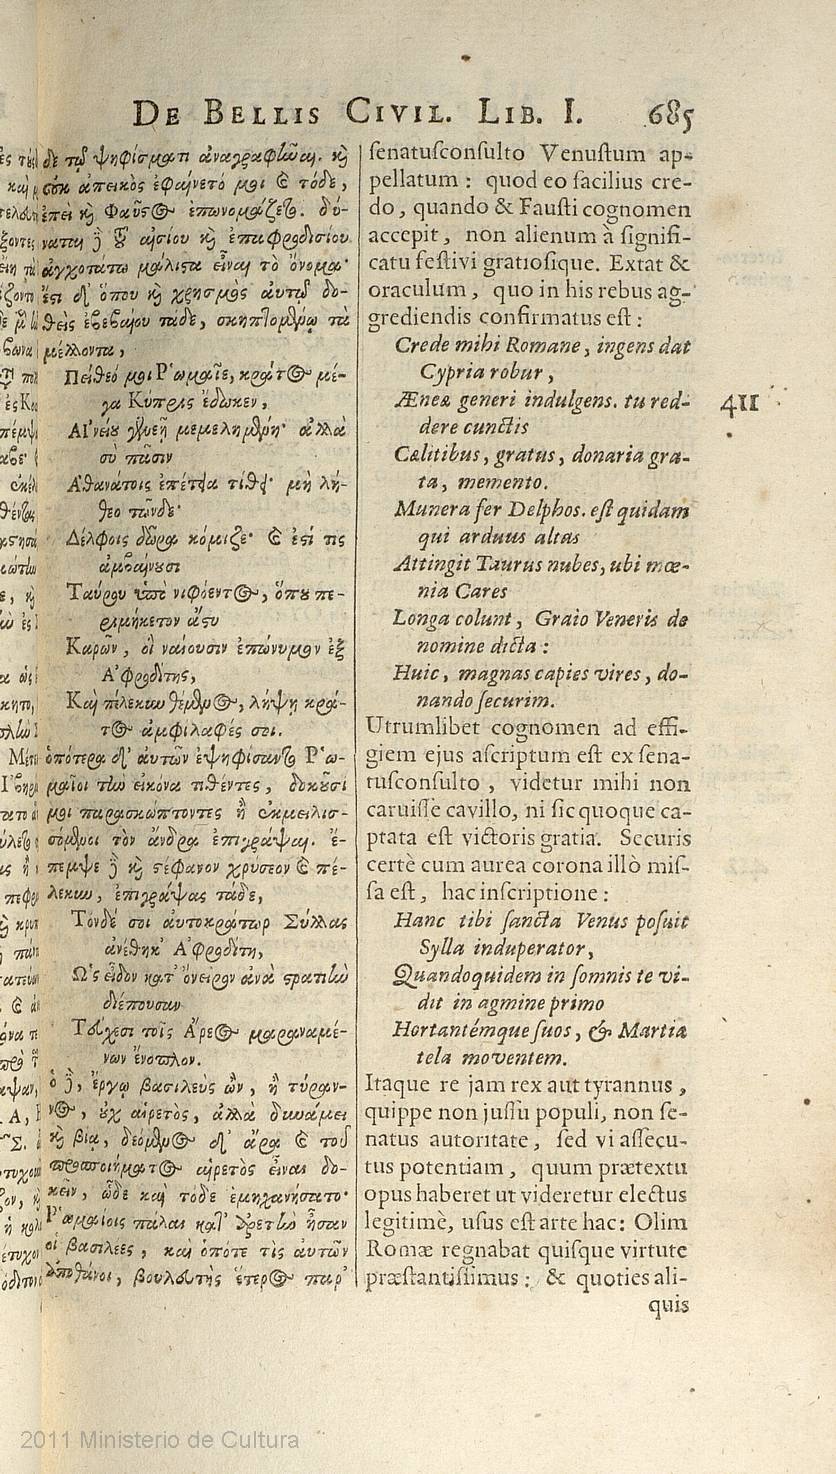 DE BELLIS CIVIL. LIB. I. 685
δὲ τῷ ψηφίσματι ἀναγραφῆναι. καὶ
οὐκ ἀπεικὸς ἐφαίνετό μοι καὶ τόδε,
ἐπεὶ καὶ Φαῦστος ἐπωνομάζετο. δύ-
ναται δὲ τοῦ αἰσίου καὶ ἐπαφροδισίου
ἀγχοτάτω μάλιστα εἶναι τὸ ὄνομα·
ἔστι δ' ὅπου καὶ χρησμὸς αὐτῷ δο-
θεὶς ἐβεβαίου τάδε, σκηπτομένῳ τὰ
μέλλοντα,
Πείθεό μοι Ῥωμαῖε, κράτος μέ-
γα Κύπρις ἔδωκεν,
Αἰνείου γενεῇ μεμελημένη· ἀλλὰ
σὺ πᾶσιν
Ἀθανάτοις ἐπέτεια τίθει· μὴ λή-
θεο τῶνδε·
Δέλφοις δῶρα κόμιζε· καὶ ἐστί τις
ἀμβαίνουσι
Ταύρου ὑπὸ νιφόεντος, ὅπου πε-
ριμήκετον ἄστυ
Καρῶν, οἳ ναίουσιν ἐπώνυμον ἐξ
Ἀφροδίτης,
Καὶ πέλεκυν θέμενος, λήψῃ κρά-
τος ἀμφιλαφές σοι.
ὁπότερα δ' αὐτῶν ἐψηφίσαντο Ῥω-
μαῖοι τὴν εἰκόνα τιθέντες, δοκοῦσί
μοι παρασκώπτοντες ἢ ἐκμειλισ-
σόμενοι τὸν ἄνδρα ἐπιγράψαι. ἔ-
πεμψε δὲ καὶ στέφανον χρύσεον καὶ πέ-
λεκυν, ἐπιγράψας τάδε,
Τόνδέ σοι αὐτοκράτωρ Σύλλας
ἀνέθηκ' Ἀφροδίτη,
Ὥς εἶδον κατ' ὄνειρον ἀνὰ στρατιὴν
διέπουσαν
Τεύχεσι τοῖς Ἄρεος μαρναμέ-
νων ἔνοπλον.
ὁ δὲ, ἔργῳ βασιλεὺς ὢν, ἢ τύραν-
νος, οὐχ αἱρετὸς, ἀλλὰ δυνάμει
καὶ βίᾳ, δεόμενος δ' ἄρα καὶ τοῦ
προσποιήματος αἱρετὸς εἶναι δο-
κεῖν, ὧδε καὶ τόδε ἐμηχανήσατο·
Ῥωμαίοις πάλαι κατ' ἀρετὴν ἦσαν
οἱ βασιλέες, καὶ ὁπότε τὶς αὐτῶν
ἀποθάνοι, βουλευτὴς ἕτερος παρ'
ſenatuſconſulto Venuſtum ap-
pellatum: quod eo facilius cre-
do, quando & Fauſti cognomen
accepit, non alienum à ſignifi-
catu feſtivi gratioſique. Extat &
oraculum, quo in his rebus ag-
grediendis confirmatus eſt:
Crede mihi Romane, ingens dat
Cypria robur,
Æneæ generi indulgens. tu red-
dere cunctis
Cælitibus, gratus, donaria gra-
ta, memento.
Munera fer Delphos. eſt quidam
qui arduus altas
Attingit Taurus nubes, ubi mœ-
nia Cares
Longa colunt, Graio Veneris de
nomine dicta:
Huic, magnas capies vires, do-
nando ſecurim.
Utrumlibet cognomen ad effi-
giem ejus aſcriptum eſt ex ſena-
tuſconſulto, videtur mihi non
caruiſſe cavillo, ni ſic quoque ca-
ptata eſt victoris gratia. Securis
certè cum aurea corona illò miſ-
ſa eſt, hac inſcriptione:
Hanc tibi ſancta Venus poſuit
Sylla induperator,
Quandoquidem in ſomnis te vi-
dit in agmine primo
Hortantémque ſuos, & Martia
tela moventem.
Itaque re jam rex aut tyrannus,
quippe non juſſu populi, non ſe-
natus autoritate, ſed vi aſſecu-
tus potentiam, quum prætextu
opus haberet ut videretur electus
legitimè, uſus eſt arte hac: Olim
Romæ regnabat quiſque virtute
præſtantiſſimus: & quoties ali-
quis
411
2011 Ministerio de Cultura